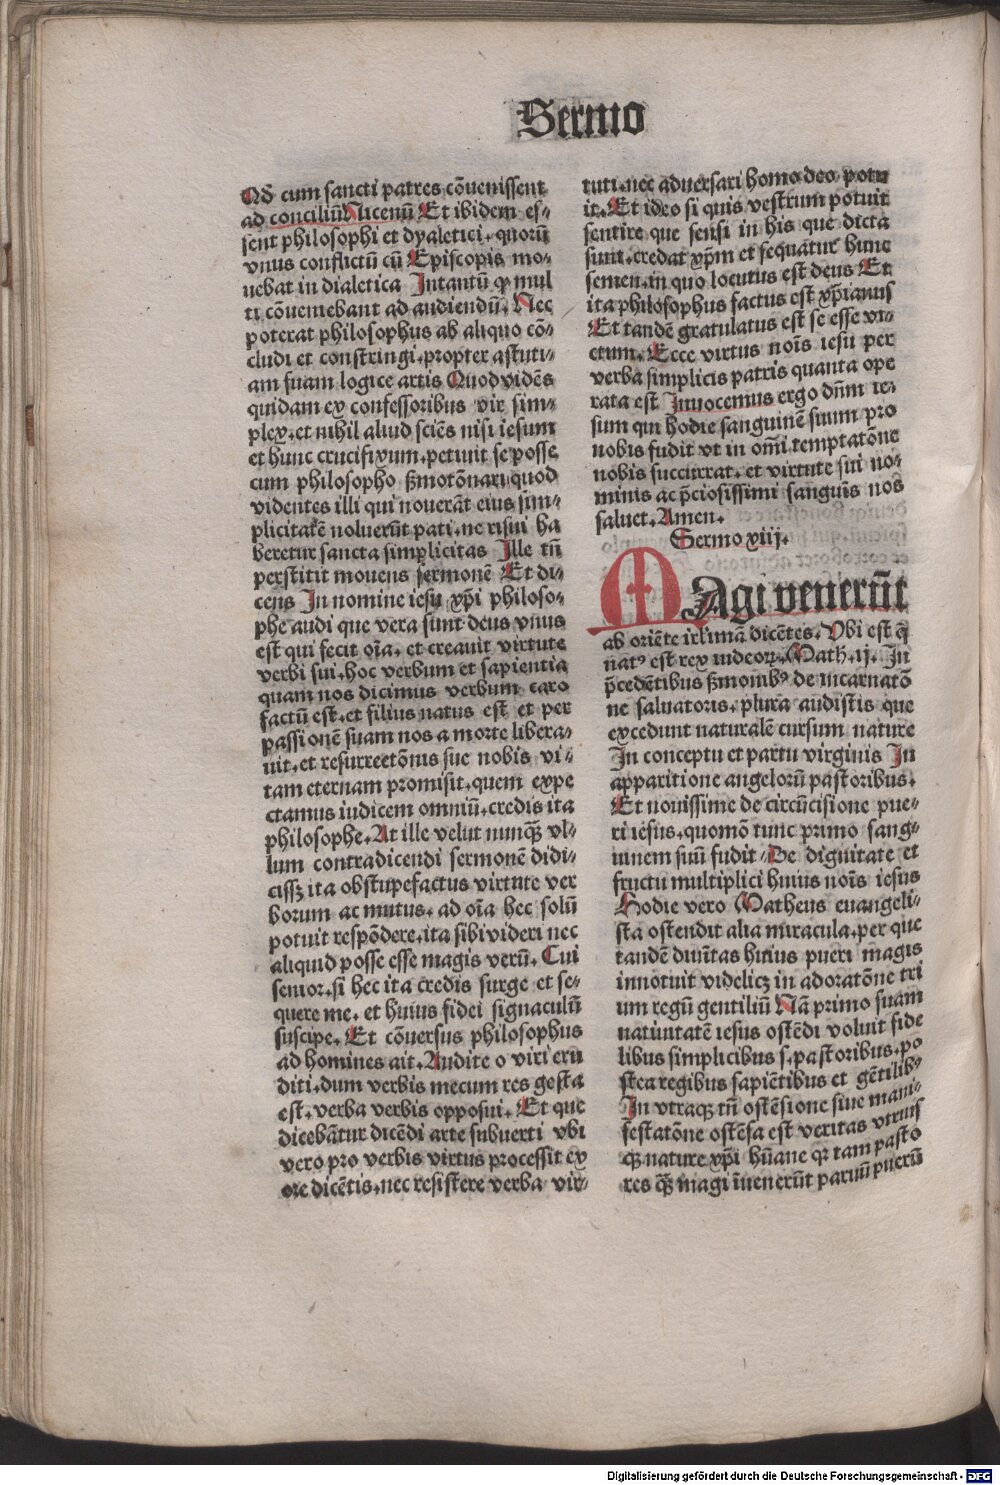 Sermo
Qd̄ cum sancti patres cōuenissent
ad conciliū Nicenū Et ibidem es⸗
sent philosophi et dyaletici. quorū
vnus conflictū cū Episcopis mo⸗
uebat in dialetica Intantū ꝙ mul
ti cōueniebant ad audiendū. Nec
poterat philosophus ab aliquo cō⸗
cludi et constringi. propter astuti⸗
am suam logice artis Quod vidēs
quidam ex confessoribus vir sim⸗
plex. et nihil aliud sciēs nisi iesum
et hunc crucifixum. petiuit se posse
cum philosopho ẞmotōnari quod
videntes illi qui nouerāt eius sim⸗
plicitatē noluerūt pati. ne risui ha
beretur sancta simplicitas Ille tn̄
perstitit mouens sermonē Et di⸗
cens In nomine iesu xp̄i philoso⸗
phe audi que vera sunt deus vnus
est qui fecit oīa. et creauit virtute
verbi sui. hoc verbum et sapientia
quam nos dicimus verbum caro
factū est. et filius natus est et per
passionē suam nos a morte libera⸗
uit. et resurrectōnis sue nobis vi⸗
tam eternam promisit. quem expe
ctamus iudicem omniū. credis ita
philosophe. At ille velut nunq̄ꝫ vl⸗
lum contradicendi sermonē didi⸗
cissꝫ ita obstupefactus virtute ver
borum ac mutus. ad oīa hec solū
potuit respōdere. ita sibi videri nec
aliquid posse esse magis verū. Cui
senior. si hec ita credis surge et se⸗
quere me. et huius fidei signaculū
suscipe. Et cōuersus philosophus
ad homines ait. Audite o viri eru
diti. dum verbis mecum res gesta
est. verba verbis opposui. Et que
dicebātur dicēdi arte subuerti vbi
vero pro verbis virtus processit ex
ore dicētis. nec resistere verba vir⸗
tuti. nec aduersari homo deo potu
it. Et ideo si quis vestrum potuit
sentire que sensi in his que dicta
sunt. credat xp̄m et sequatur hunc
semen. in quo locutus est deus Et
ita philosophus factus est xp̄ianus
Et tandē gratulatus est se esse vi⸗
ctum. Ecce virtus noīs iesu per
verba simplicis patris quanta ope
rata est Inuocemus ergo dn̄m ie⸗
sum qui hodie sanguinē suum pro
nobis fudit vt in om̄i temptatōne
nobis succurrat. et virtute sui no⸗
minis ac p̄ciosissimi sanguīs nos
saluet. Amen.
Sermo xiij.
MAgi venerūt
ab oriēte irl̄imā dicētes. Vbi est q̄
natꝰ est rex iudeoꝝ. Math. ij. In
p̄cedētibus ẞmonibꝰ de incarnatō
ne saluatoris. plura audistis que
excedunt naturalē cursum nature
In conceptu et partu virginis In
apparitione angelorū pastoribus.
Et nouissime de circūcisione pue⸗
ri iesus. quomō tunc primo sang⸗
uinem suū fudit. De dignitate et
fructu multiplici huius noīs iesus
Hodie vero Matheus euangeli⸗
sta ostendit alia miracula. per que
tandē diuītas huius pueri magis
innotuit videlicꝫ in adoratōne tri
um regū gentiliū Nā primo suam
natiuitatē iesus ostēdi voluit fide
libus simplicibus s. pastoribus. po
stea regibus sapiētibus et gētilibꝰ
In vtraqꝫ tn̄ ostēsione siue mani⸗
festatōne ostēsa est veritas vtrius
qꝫ nature xp̄i hūane qꝛ tam pasto
res q̄ꝫ magi inuenerūt paruū puerū
Digitalisierung gefördert durch die Deutsche Forschungsgemeinschaft - DFG